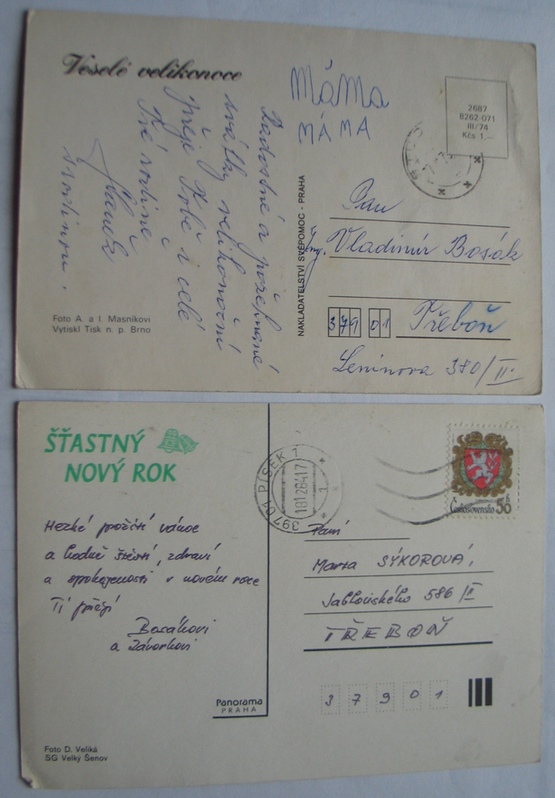 Veselé velikonoce
Radostné a požehnané
svátky velikonoční
přeje Tobě i celé
Tvé rodině
s rodinou.
Foto A. a I. Masníkovi
Vytiskl Tisk n. p. Brno
NAKLADATELSTVÍ SVÉPOMOC - PRAHA
MáMa
MÁMA
2687
8262-071
III/74
Kčs 1.–
Pan
Ing. Vladimír Bosák
379 01 Třeboň
Leninova 380/II.
ŠŤASTNÝ
NOVÝ ROK
Hezké prožití vánoc
a hodně štěstí, zdraví
a spokojenosti v novém roce
Ti přejí
Bosákovi
a Závorkovi
Panorama
PRAHA
Foto D. Veliká
SG Velký Šenov
397 01 PÍSEK 1
Československo 50 h
Paní
Marta SÝKOROVÁ,
Jablonského 586/II
TŘEBOŇ
37901